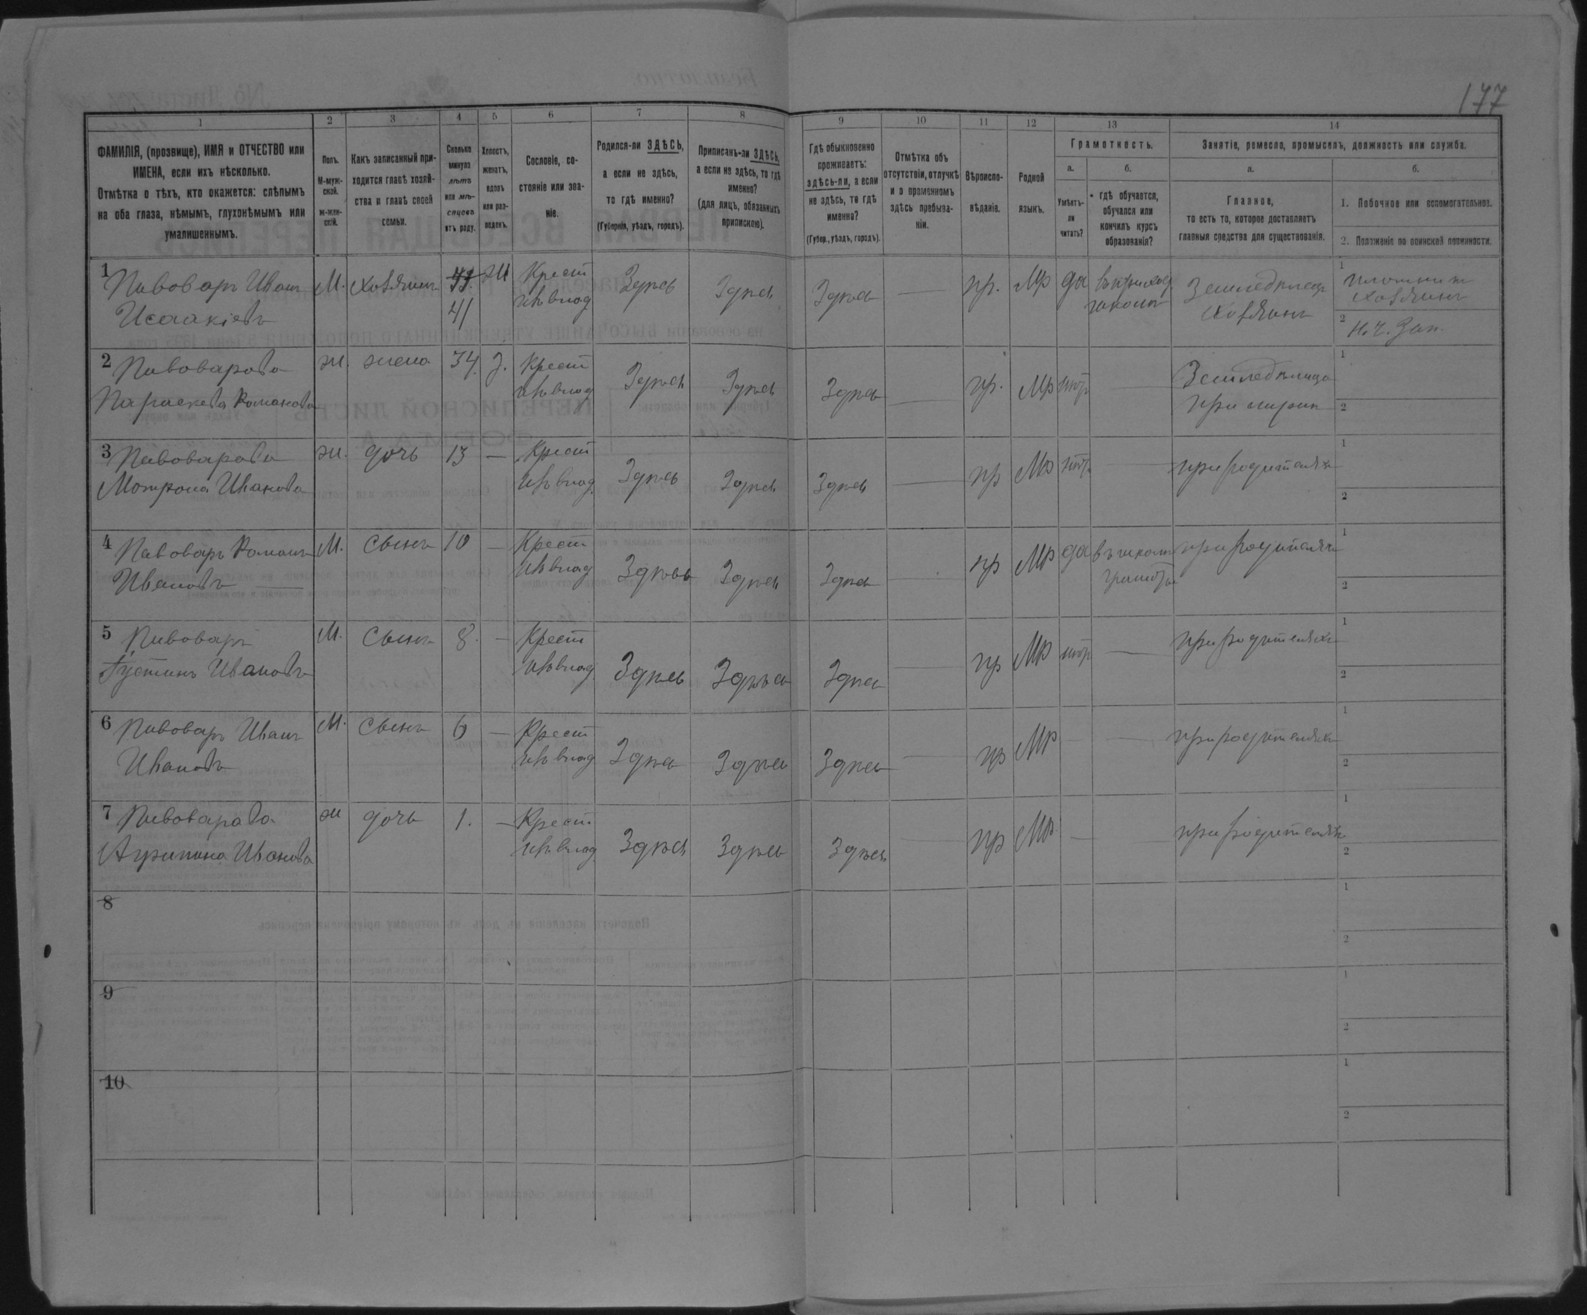 177
1 2 3 4 5 6 7 8 9 10 11 12 13 14
ФАМИЛІЯ, (прозвище), ИМЯ и ОТЧЕСТВО или
ИМЕНА, если ихъ нѣсколько.
Отмѣтка о тѣхъ, кто окажется: слѣпымъ
на оба глаза, нѣмымъ, глухонѣмымъ или
умалишеннымъ.
Полъ.
М-муж-
ской.
ж-жен-
скій.
Какъ записанный при-
ходится главѣ хозяй-
ства и главѣ своей
семьи.
Сколько
минуло
лѣтъ
или мѣ-
сяцевъ
отъ роду.
Холостъ,
женатъ,
вдовъ
или раз-
веденъ.
Сословіе, со-
стояніе или зва-
ніе.
Родился-ли ЗДѢСЬ,
а если не здѣсь,
то гдѣ именно?
(Губернія, уѣздъ, городъ).
Приписанъ-ли ЗДѢСЬ,
а если не здѣсь, то гдѣ
именно?
(для лицъ, обязанныхъ
припискою).
Гдѣ обыкновенно
проживаетъ:
здѣсь-ли, а если
не здѣсь, то гдѣ
именно?
(Губерн., уѣздъ, городъ).
Отмѣтка объ
отсутствіи, отлучкѣ
и о временномъ
здѣсь пребыва-
ніи.
Вѣроиспо-
вѣданіе.
Родной
языкъ.
Грамотность.
а. б.
Умѣетъ-
ли
читать?
гдѣ обучается,
обучался или
кончилъ курсъ
образованія?
Занятіе, ремесло, промыселъ, должность или служба.
а. б.
Главное,
то есть то, которое доставляетъ
главныя средства для существованія.
1. Побочное или вспомогательное.
2. Положеніе по воинской повинности.
1 Пивоваръ Иванъ М. хозяинъ 41 ж Крест Здѣсь Здѣсь Здѣсь — пр. Мр да Земледѣлецъ 1
Исаакіевъ хозяинъ хозяинъ
2 н. ч. зап.
2 Пивоварова ж. жена 34 з. Крест Здѣсь Здѣсь Здѣсь — пр. Мр нѣт — Земледѣлица 1
Параскева Романова при мужѣ 2
3 Пивоварова ж. дочь 13 — Крест Здѣсь Здѣсь Здѣсь — пр Мр нѣт — при родителяхъ 1
Мотрона Иванова 2
4 Пивоваръ Романъ М. сынъ 10 — Крест Здѣсь Здѣсь Здѣсь — пр Мр да въ школѣ при родителяхъ 1
Ивановъ грамоты 2
5 Пивоваръ М. сынъ 8. — Крест Здѣсь Здѣсь Здѣсь — пр Мр нѣт — при родителяхъ 1
Густинъ Ивановъ 2
6 Пивоваръ Иванъ М. сынъ 6 — Крест Здѣсь Здѣсь Здѣсь — пр Мр — — при родителяхъ 1
Ивановъ 2
7 Пивоварова ж дочь 1. — Крест Здѣсь Здѣсь Здѣсь — пр Мр — — при родителяхъ 1
Агрипина Иванова 2
8 1
2
9 1
2
10 1
2